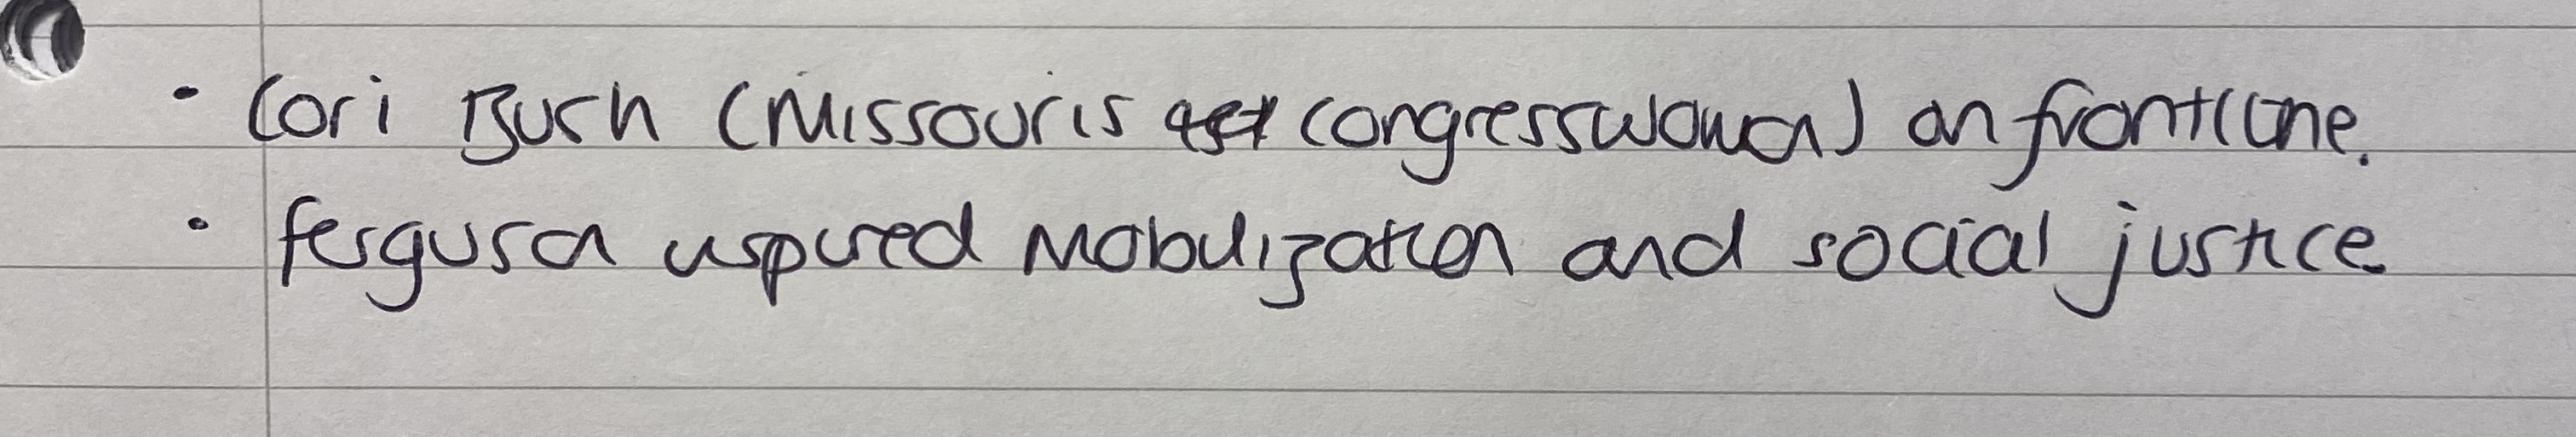 · Cori Bush (Missouris 1st congresswoman) on frontline.
· ferguson inspired Mobilization and social justice